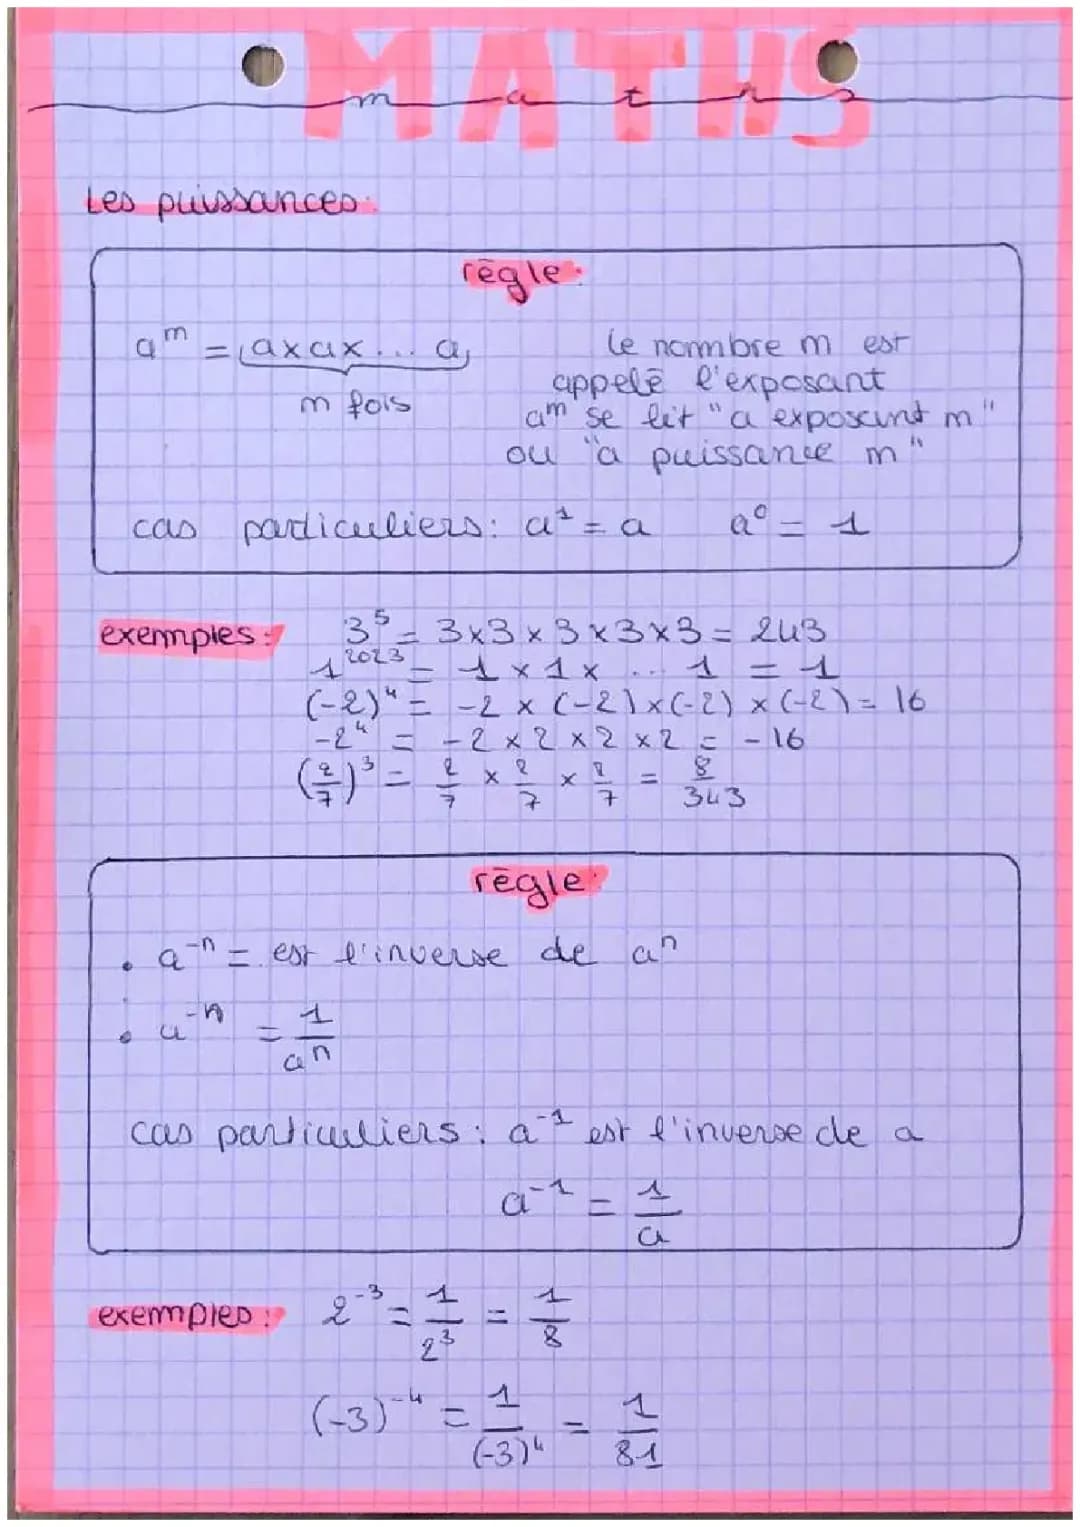 MATHS
maths
Les puissances:
règle:
a^m = a×a×... a,
m fois
Le nommbre m est
appelé l'exposant
a^m se lit "a exposant m"
ou "a puissance m"
cas particuliers: a^1 = a    a^0 = 1
exemples: 3^5 = 3×3×3×3×3 = 243
1^2023 = 1 × 1 × ... 1 = 1
(-2)^4 = -2 × (-2)×(-2)×(-2) = 16
-2^4 = -2 × 2 × 2 × 2 = -16
(2/7)^3 = 2/7 × 2/7 × 2/7 = 8/343
règle:
• a^-n = est l'inverse de a^n
• a^-n = 1/a^n
cas particuliers: a^-1 est l'inverse de a
a^-1 = 1/a
exemples: 2^-3 = 1/2^3 = 1/8
(-3)^-4 = 1/(-3)^4 = 1/81